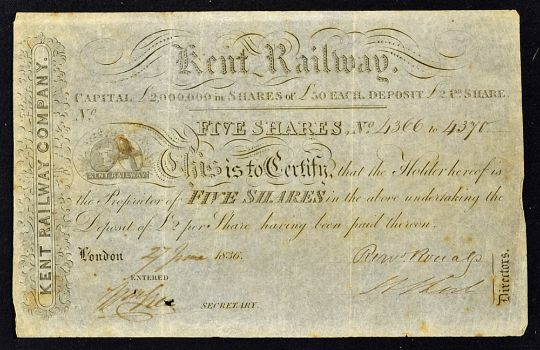 KENT RAILWAY COMPANY.
Kent Railway.
CAPITAL £2,000,000 in SHARES of £50 EACH. DEPOSIT £2 Per SHARE.
No
FIVE SHARES, No 4366 to 4370
KENT RAILWAY
This is to Certify, that the Holder hereof is
the Proprietor of FIVE SHARES in the above undertaking the
Deposit of £2 per Share having been paid thereon.
London 27 June 1836.
ENTERED
SECRETARY.
Directors.